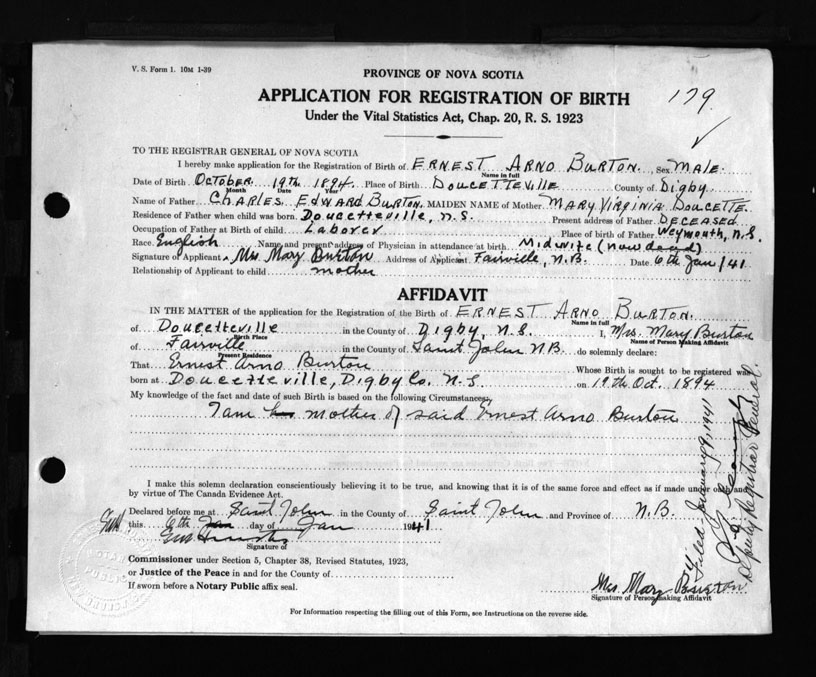 V. S. Form 1. 10M 1-39
PROVINCE OF NOVA SCOTIA
179
APPLICATION FOR REGISTRATION OF BIRTH
Under the Vital Statistics Act, Chap. 20, R. S. 1923
TO THE REGISTRAR GENERAL OF NOVA SCOTIA
I hereby make application for the Registration of Birth of ERNEST ARNO BURTON. Sex MALE.
Name in full
Date of Birth OCTOBER 19th 1894. Place of Birth DOUCETTEVILLE County of Digby
Month Date Year
Name of Father CHARLES EDWARD BURTON. MAIDEN NAME of Mother MARY VIRGINIA DOUCETTE.
Residence of Father when child was born. Doucetteville, N.S. Present address of Father DECEASED
Occupation of Father at Birth of child Laborer Place of birth of Father Weymouth, N.S.
Race. English Name and present address of Physician in attendance at birth. Midwife (now dead)
Signature of Applicant Mrs Mary Burton Address of Applicant Fairville, N.B. Date 6th Jan/41
Relationship of Applicant to child mother
AFFIDAVIT
IN THE MATTER of the application for the Registration of the Birth of ERNEST ARNO BURTON.
Name in full
of Doucetteville in the County of Digby, N.S. I, Mrs. Mary Burton
Birth Place Name of Person Making Affidavit
of Fairville in the County of Saint John N.B. do solemnly declare:
Present Residence
That Ernest Arno Burton Whose Birth is sought to be registered was
born at Doucetteville, Digby Co. N.S. on 19th Oct. 1894
My knowledge of the fact and date of such Birth is based on the following Circumstances,
I am mother of said Ernest Arno Burton
I make this solemn declaration conscientiously believing it to be true, and knowing that it is of the same force and effect as if made under oath and
by virtue of The Canada Evidence Act.
Declared before me at Saint John in the County of Saint John and Province of N.B.
this 6th day of Jan 1941
Signature of
Commissioner under Section 5, Chapter 38, Revised Statutes, 1923,
or Justice of the Peace in and for the County of
If sworn before a Notary Public affix seal.
Mrs. Mary Burton
Signature of Person making Affidavit
For Information respecting the filling out of this Form, see Instructions on the reverse side.
Filed January 9, 1941
Deputy Registrar General.